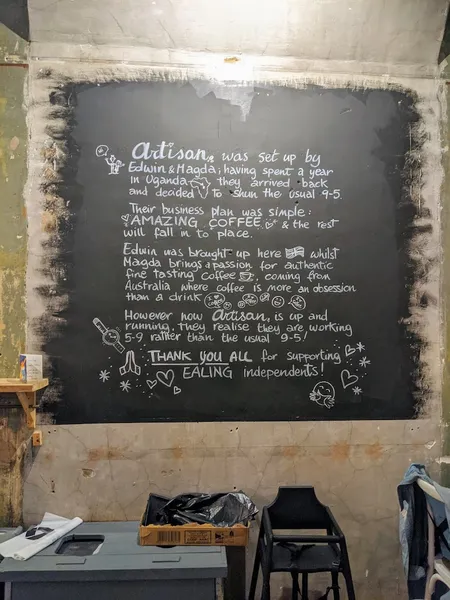 Artisan, was set up by
Edwin & Magda; having spent a year
in Uganda they arrived back
and decided to shun the usual 9-5.
Their business plan was simple:
"AMAZING COFFEE" & the rest
will fall in to place.
Edwin was brought up here whilst
Magda brings a passion for authentic
fine tasting coffee coming from
Australia where coffee is more an obsession
than a drink
However now Artisan, is up and
running, they realise they are working
5-9 rather than the usual '9-5'!
THANK YOU ALL for supporting
EALING independents!